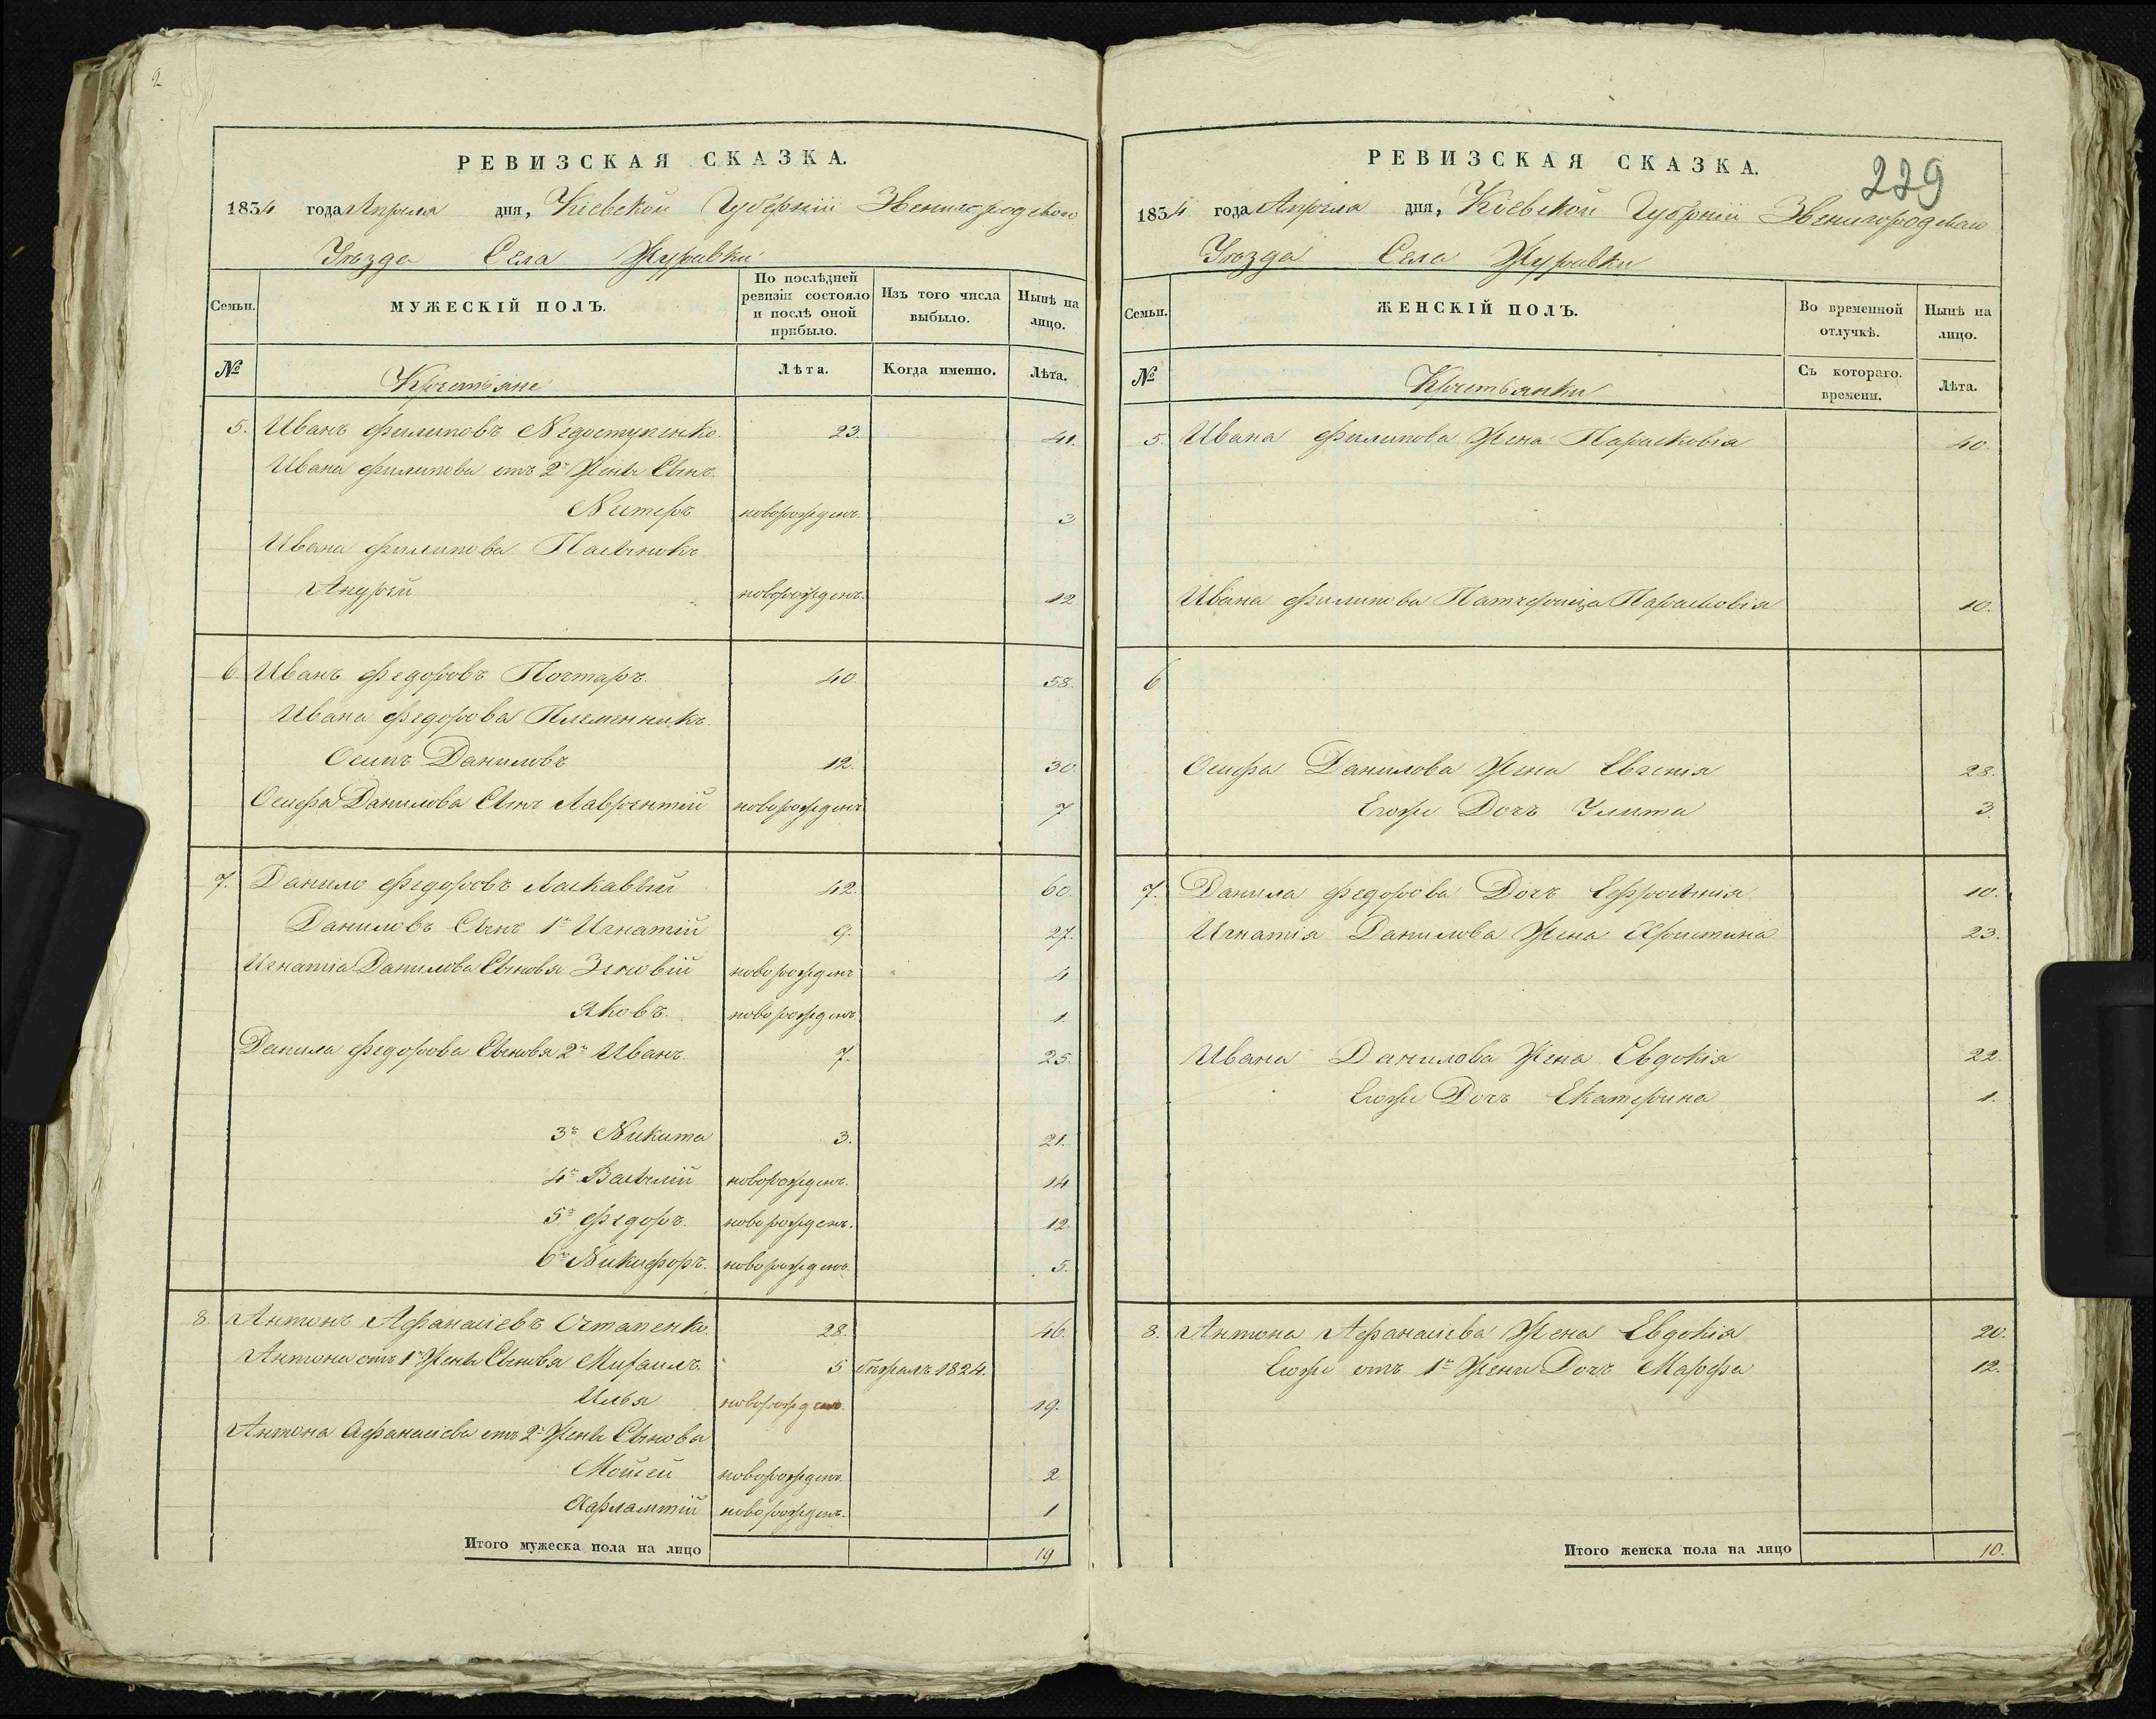 2
РЕВИЗСКАЯ СКАЗКА.
1834 года Апреля дня, Кіевской Губерніи Звенигородскаго
Уѣзда Села Журавки
Семьи. МУЖЕСКІЙ ПОЛЪ. По послѣдней ревизіи состояло и послѣ оной прибыло. Изъ того числа выбыло. Нынѣ на лицо.
№ Крестьяне Лѣта. Когда именно. Лѣта.
5. Иванъ Филиповъ Недоступенко. 23. 41.
Ивана Филипова отъ 2й Жены Сынъ.
Нестеръ новорожденъ. 3
Ивана Филипова Пасынокъ
Андрей новорожденъ. 12
6. Иванъ Федоровъ Почтаръ. 40. 58.
Ивана Федорова Племенникъ.
Осипъ Даниловъ 12. 30
Осифа Данилова Сынъ Лаврентій новорожденъ 7
7. Данило Федоровъ Ласкавый 42. 60.
Даниловъ Сынъ 1й Игнатій 9. 27.
Игнатія Данилова Сыновья Зиновій новорожденъ 4
Яковъ. новорожденъ. 1.
Данила Федорова Сыновья 2й Иванъ. 7. 25.
3й Никита 3. 21.
4й Василій новорожденъ. 14
5й Федоръ. новорожденъ. 12.
6й Никифоръ. новорожденъ. 5.
8. Антонъ Афанасіевъ Остапенко. 28. 46.
Антона отъ 1й Жены Сыновья Михаилъ. 5 1824.
Илья новорожден. 19.
Антона Афанасіева отъ 2й Жены Сыновья
Мойсей новорожденъ. 2
Харлампій новорожденъ. 1
Итого мужеска пола на лицо 19
229
РЕВИЗСКАЯ СКАЗКА.
1834 года Апреля дня, Кіевской Губерніи Звенигородскаго
Уѣзда Села Журавки
Семьи. ЖЕНСКІЙ ПОЛЪ. Во временной отлучкѣ. Нынѣ на лицо.
№ Крестьянки Съ котораго. времени. Лѣта.
5. Ивана Филипова Жена Парасковія 40.
Ивана Филипова Парасковія 10.
6
Осифа Данилова Жена Евгенія 28.
Егожъ Дочъ Улита 3.
7. Данила Федорова Дочъ Ефросинія 10.
Игнатія Данилова Жена Христина 23.
Ивана Данилова Жена Евдокія 22.
Егожъ Дочъ Екатерина 1.
8. Антона Афанасіева Жена Евдокія 20.
Егожъ отъ 1й Жены Дочъ Марфа 12.
Итого женска пола на лицо 10.